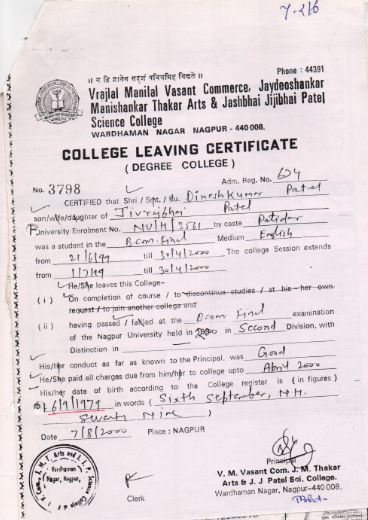 7-2/6
॥ न हि ज्ञानेन सदृशं पवित्रमिह विद्यते ॥
Phone : 44391
Vrajlal Manilal Vasant Commerce, Jaydeoshankar
Manishankar Thakar Arts & Jashbhai Jijibhai Patel
Science College
WARDHAMAN NAGAR NAGPUR - 440 008.
COLLEGE LEAVING CERTIFICATE
( DEGREE COLLEGE )
No. 3798 Adm. Reg. No. 634
CERTIFIED that Shri / Smt. / Ku. Dineshkumar Patel
son/wife/daughter of Jivrajbhai Patel
University Enrolment No. by caste Patidar
was a student in the B.com. Final Medium English
from till 30/4/2000 The college Session extends
from 1/7/99 till 30/4/2000
He/She leaves this College-
( i ) On completion of course / to discontinue studies / at his - her own
request / to join another college and
( ii ) having passed / failed at the B.com Final examination
of the Nagpur University held in in Second Division, with
Distinction in
His/her conduct as far as known to the Principal. was Good
He/She paid all charges due from him/her to college upto April 2000
His/her date of birth according to the College register is ( in figures )
6/9/1979 in words ( Sixth September, N.H.
Seventy Nine )
Date 7/8/2000 Place : NAGPUR
Principal
V. M. Vasant Com. J. M. Thakar
Arts & J. J Patel Sci. College.
Wardhaman Nagar, Nagpur-440 008.
Clerk
Wardhaman
Nagar, Nagpur,